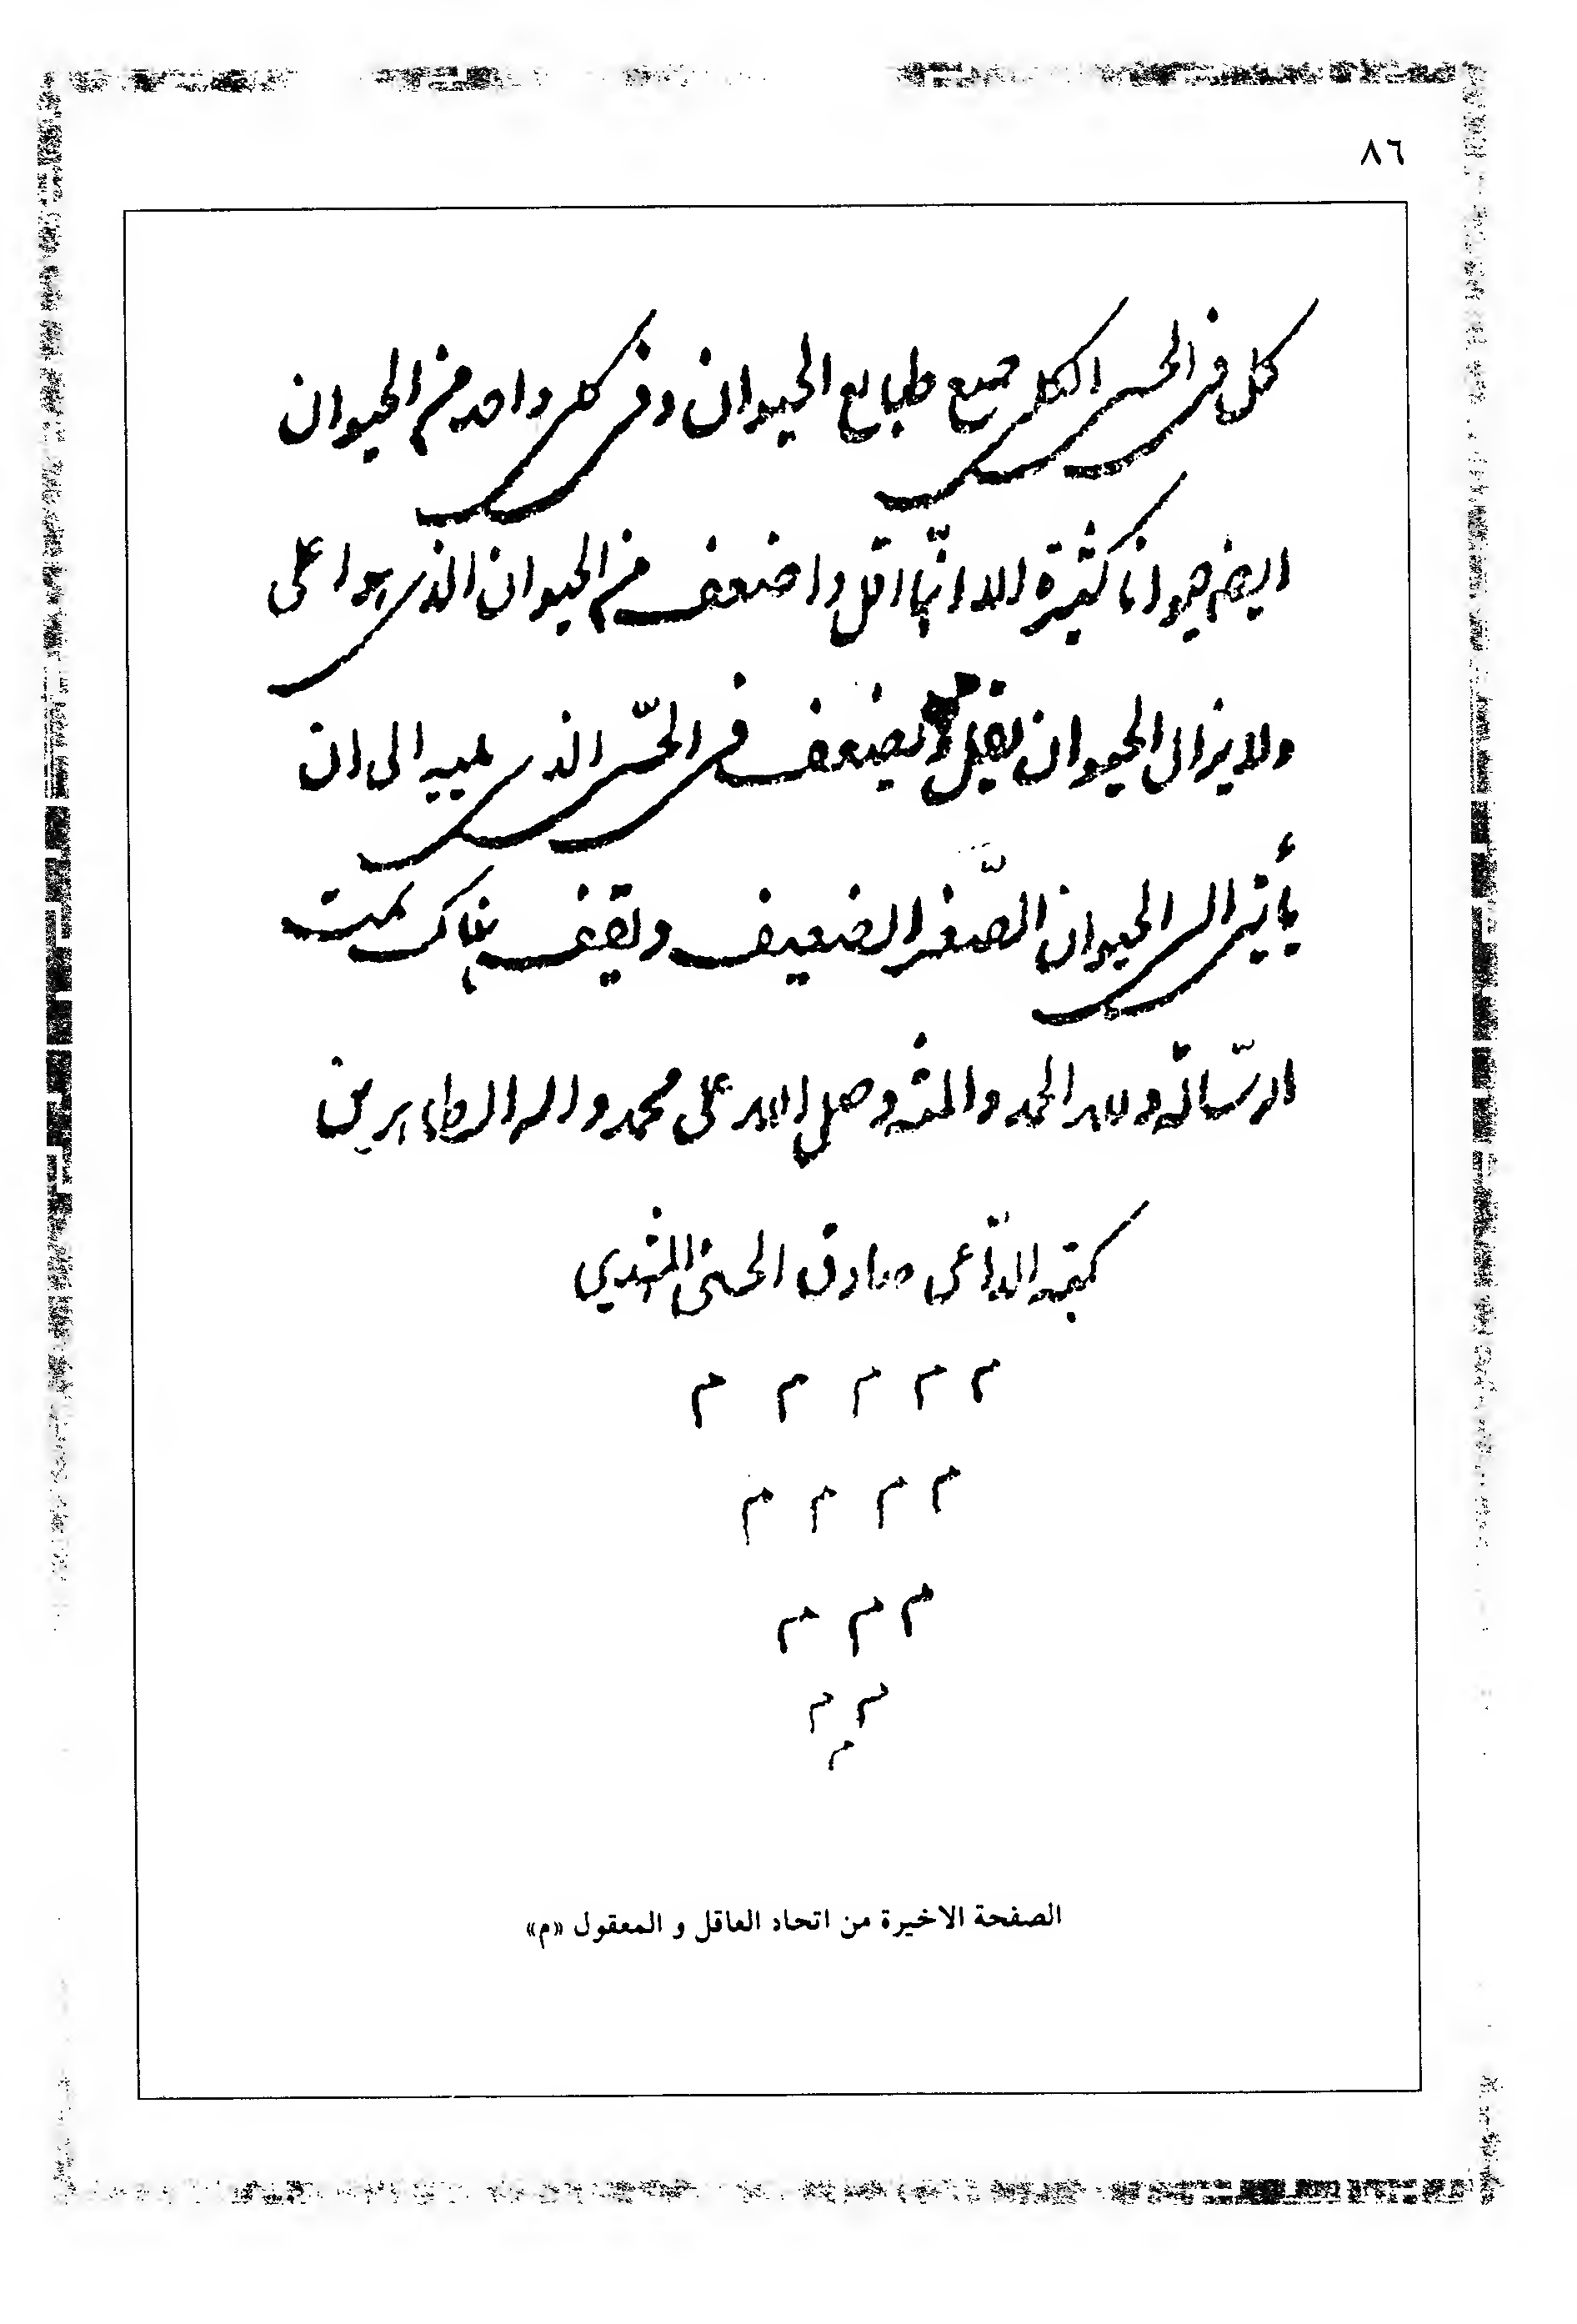 ٨٦
كل فى الحس الكلى جميع طبايع الحيوان و فى كل واحد من الحيوان
ايضا حيوانا كثيرة الا انها اقل و اضعف من الحيوان الذى هو اعلى
ولا يزال الحيوان يقل و يضعف فى الحسّ الذى يليه الى ان
يأتى الى الحيوان الصّغير الضعيف و يقف هناك تمت
الرّسالة و لله الحمد و المنة و صلى الله على محمد و اله الطاهرين
كتبه الدّاعى صادق الحسنى
م م م م م
م م م م
م م م
م م
م
الصفحة الاخيرة من اتحاد العاقل و المعقول «م»